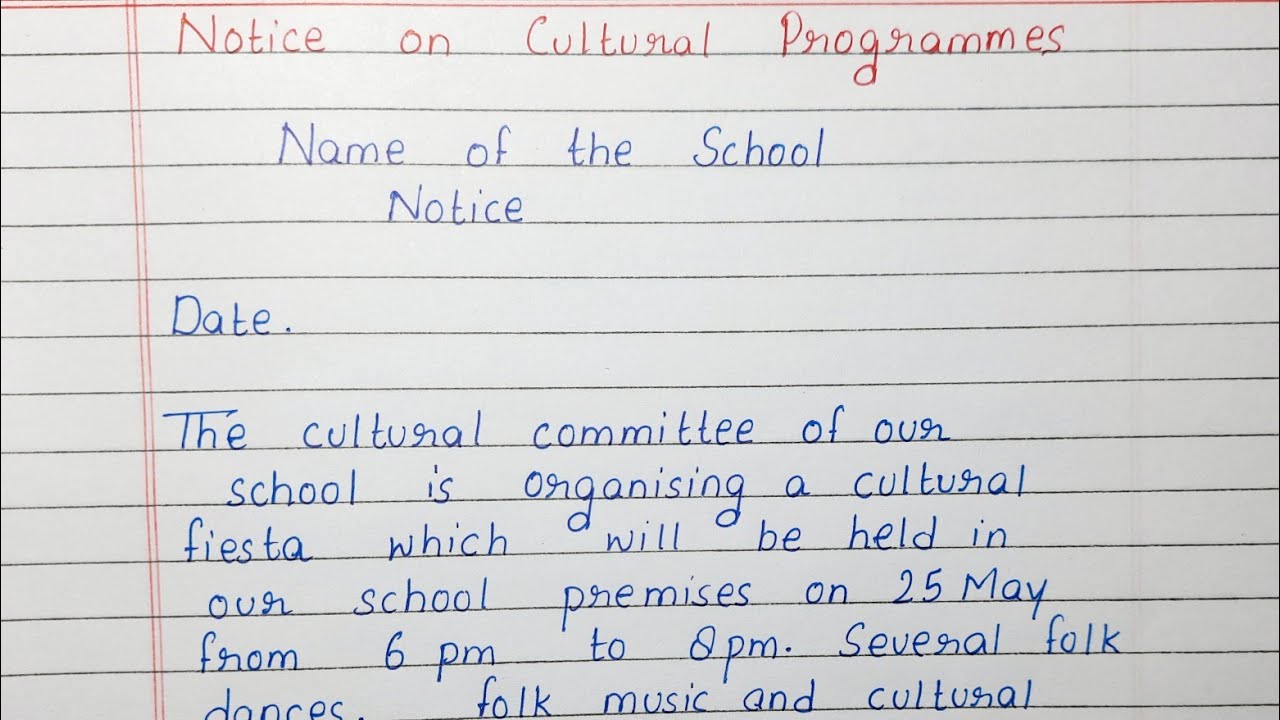 Notice on Cultural Programmes
Name of the School
Notice
Date.
The cultural committee of our
school is organising a cultural
fiesta which will be held in
our school premises on 25 May
from 6 pm to 8pm. Several folk
dances, folk music and cultural